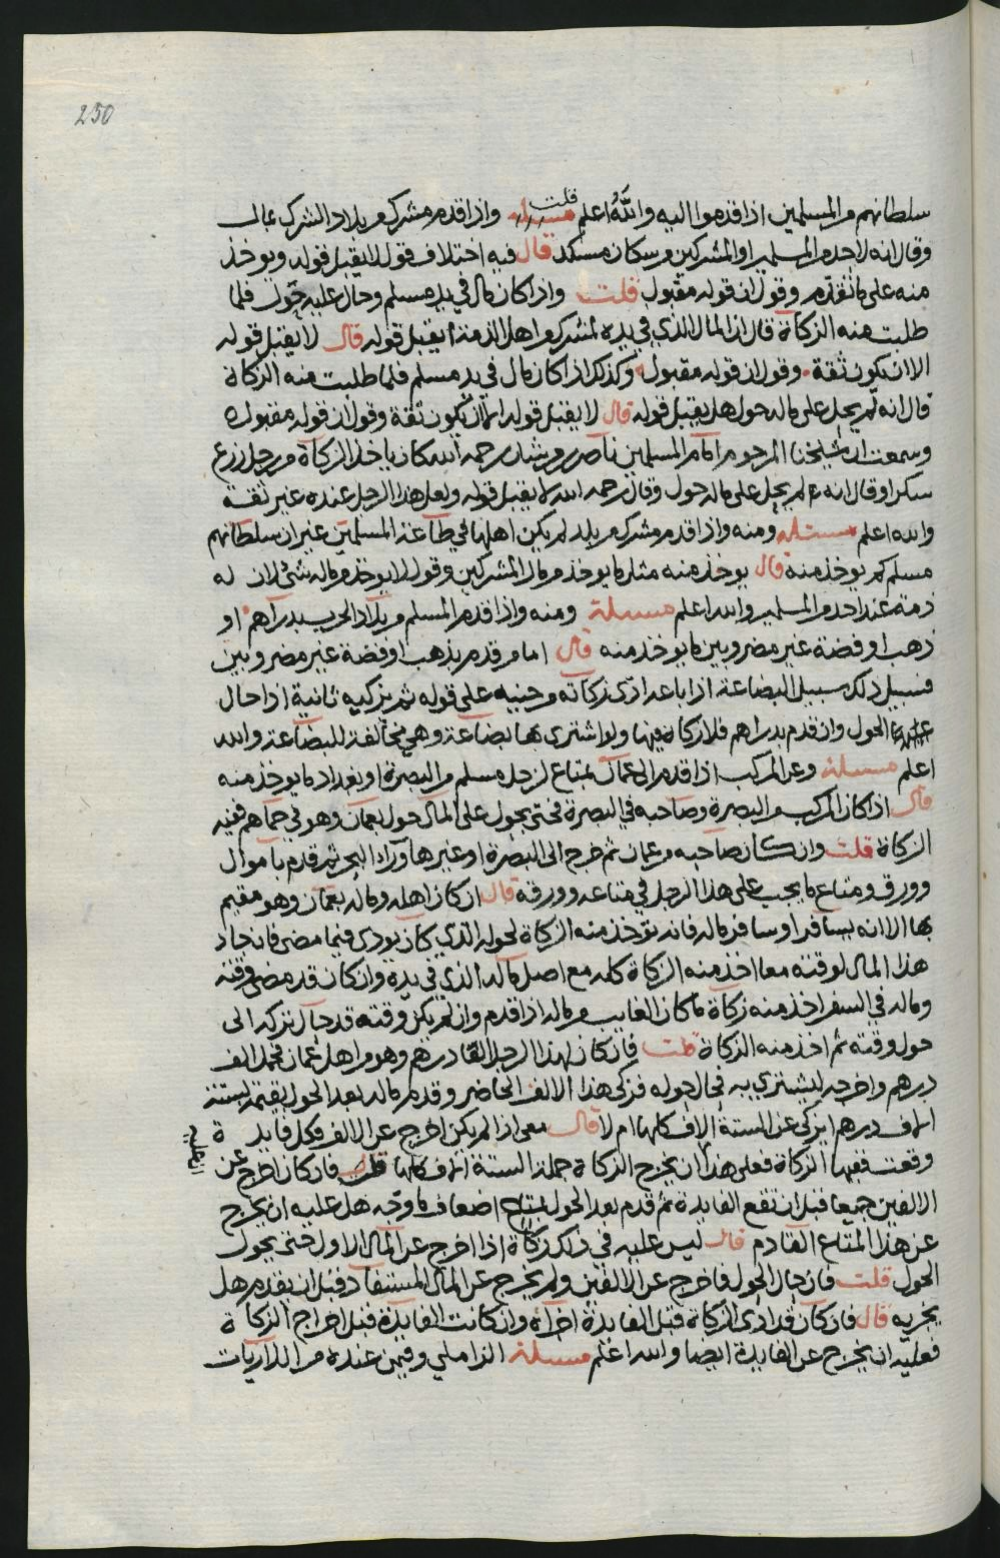 250
سلطانهم من المسلمين اذا قدموا اليه والله اعلم مسئلة قلت واذا قدم مشرك من بلاد الشرك بمال
وقال انه لاحد من المسلمين او المشركين من سكان مسكد قال فيه اختلاف قول لا يقبل قوله ويوخذ
منه على ما تقدم وقول ان قوله مقبول قلت واذا كان مال في يد مسلم وحال عليه حول فلما
طلبت منه الزكاة قال ان المال الذي في يده لمشرك من اهل الذمة ايقبل قوله قال لا يقبل قوله
الا ان يكون ثقة وقول ان قوله مقبول وكذلك اذا كان مال في يد مسلم فلما طلبت منه الزكاة
قال انه لم يحل على ماله حول هل يقبل قوله قال لا يقبل قوله الا ان يكون ثقة وقول ان قوله مقبول
وسمعت ان شيخنا المرحوم امام المسلمين ناصر بن مرشد رحمه الله كان ياخذ الزكاة من رجل زرع
سكرا وقال انه لم يحل على ماله حول وقال رحمه الله لا يقبل قوله ولعل هذا الرجل عنده غير ثقة
والله اعلم مسئلة ومنه واذا قدم مشرك من بلد لم يكن اهلها في طاعة المسلمين غير ان سلطانهم
مسلم كم يوخذ منه قال يوخذ منه مثل ما يوخذ من مال المشركين وقول لا يوخذ من ماله شئ لان له
ذمة عند احد من المسلمين والله اعلم مسئلة ومنه واذا قدم المسلم من بلاد الحرب بدراهم او
ذهب او فضة غير مضروبين ما يوخذ منه قال اما من قدم بذهب او فضة غير مضروبين
فسبيل ذلك سبيل البضاعة اذا باعه ادى زكاته من حينه على قوله ثم يزكيه ثانية اذا حال
الحول وان قدم بدراهم فلا زكاة فيها ولو اشترى بها بضاعة وهي مخالفة للبضاعة والله
اعلم مسئلة وعن المركب اذا قدم الى عمان بمتاع لرجل مسلم من البصرة او بغداد ما يوخذ منه
قال اذا كان المركب من البصرة وصاحبه في البصرة فحتى يحول على المال حول بعمان وهو في حماهم ففيه
الزكاة قلت وان كان صاحبه من عمان ثم خرج الى البصرة او غيرها وراد البحر ثم قدم باموال
وورق ومتاع ما يجب على هذا الرجل في متاعه وورقه قال ان كان اهله وماله بعمان وهو مقيم
بها الا انه يسافر او سافر ماله فانه توخذ منه الزكاة لحوله الذي كان يودي فيما مضى فان جاء
هذا المال لوقته معا اخذ منه الزكاة كله مع اصل ماله الذي في يده وان كان قد مضى وقته
وماله في السفر اخذ منه زكاة ما كان الغايب من ماله اذا قدم وان لم يكن وقته قد حال تركه الى
حول وقته ثم اخذ منه الزكاة قلت فان كان لهذا الرجل القادم وهو من اهل عمان فحمل الف
درهم واخرجه ليشتري به فحال حوله فزكى هذا الالف الحاضر وقدم ماله بعد الحول بقيمة ستة
الاف درهم ايزكى عن الستة الاف كلها ام لا قال معي اذا لم يكن اخرج عن الالف فكل فايدة
وقعت ففيها الزكاة فعلى هذا ان يخرج الزكاة جملة الستة الاف كلها قلت فان كان اخرج عن
الالفين جميعا قبل ان تقع الفايدة ثم قدم بعد الحول بمتاع اضعاف ما وجه هل عليه ان يخرج
عن هذا المتاع القادم قال ليس عليه في ذلك زكاة اذا اخرج عن المال الاول حتى يحول
الحول قلت فان حال الحول فاخرج عن الالفين ولم يخرج عن المال المستفاد قبل ان يقدم هل
يجزيه قال فان كان قد ادى الزكاة قبل الفايدة اجزاه وان كانت الفايدة قبل اخراج الزكاة
فعليه ان يخرج عن الفايدة ايضا والله اعلم مسئلة الزاملي وفيمن عنده من اللاريات